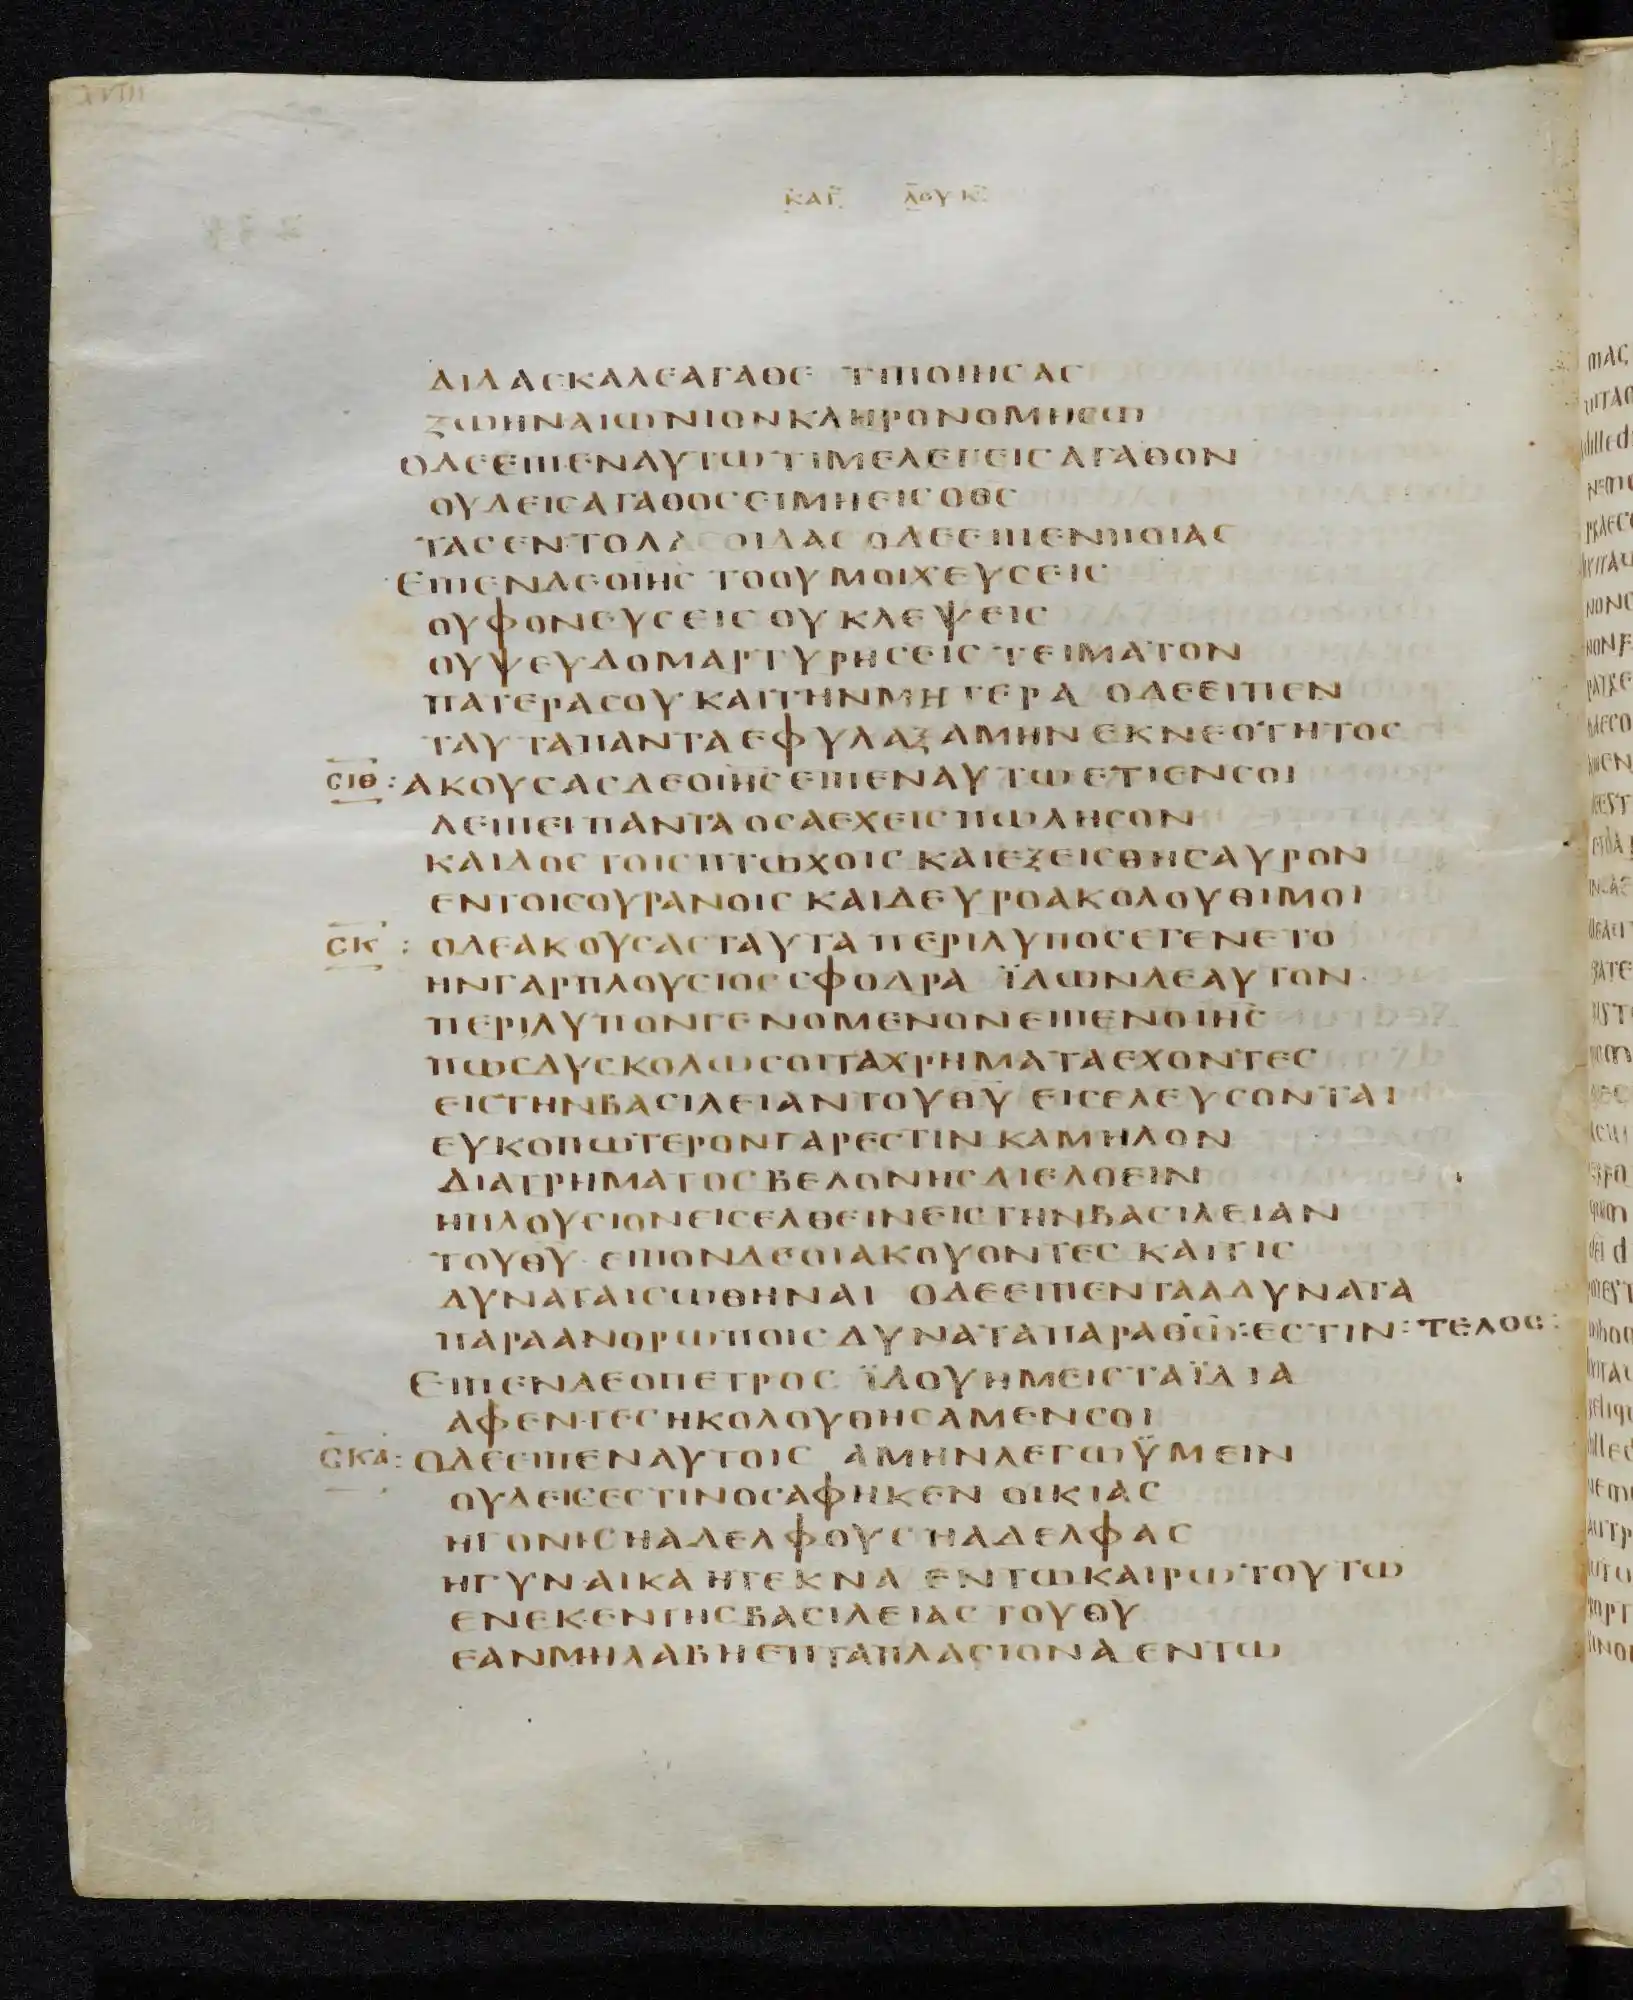 ΚΑΤ ΛΟΥΚ
ΔΙΔΑΣΚΑΛΕΑΓΑΘΕ ΤΙΠΟΙΗΣΑΣ
ΖΩΗΝΑΙΩΝΙΟΝΚΛΗΡΟΝΟΜΗΣΩ
ΟΔΕΕΙΠΕΝΑΥΤΩΤΙΜΕΛΕΓΕΙΣΑΓΑΘΟΝ
ΟΥΔΕΙΣΑΓΑΘΟΣΕΙΜΗΕΙΣΟΘΣ
ΤΑΣΕΝΤΟΛΑΣΟΙΔΑΣ ΟΔΕΕΙΠΕΝΠΟΙΑΣ
ΕΙΠΕΝΔΕΟΙΗΣ ΤΟΟΥΜΟΙΧΕΥΣΕΙΣ
ΟΥΦΟΝΕΥΣΕΙΣΟΥΚΛΕΨΕΙΣ
ΟΥΨΕΥΔΟΜΑΡΤΥΡΗΣΕΙΣ ΤΕΙΜΑΤΟΝ
ΠΑΤΕΡΑΣΟΥΚΑΙΤΗΝΜΗΤΕΡΑ ΟΔΕΕΙΠΕΝ
ΤΑΥΤΑΠΑΝΤΑΕΦΥΛΑΞΑΜΗΝΕΚΝΕΟΤΗΤΟΣ
ΣΙΘ: ΑΚΟΥΣΑΣΔΕΟΙΗΣΕΙΠΕΝΑΥΤΩΕΤΙΕΝΣΟΙ
ΛΕΙΠΕΙΠΑΝΤΑΟΣΑΕΧΕΙΣΠΩΛΗΣΟΝ
ΚΑΙΔΟΣΤΟΙΣΠΤΩΧΟΙΣΚΑΙΕΞΕΙΣΘΗΣΑΥΡΟΝ
ΕΝΤΟΙΣΟΥΡΑΝΟΙΣΚΑΙΔΕΥΡΟΑΚΟΛΟΥΘΙΜΟΙ
ΣΚ : ΟΔΕΑΚΟΥΣΑΣΤΑΥΤΑΠΕΡΙΛΥΠΟΣΕΓΕΝΕΤΟ
ΗΝΓΑΡΠΛΟΥΣΙΟΣΣΦΟΔΡΑ ΪΔΩΝΔΕΑΥΤΟΝ
ΠΕΡΙΛΥΠΟΝΓΕΝΟΜΕΝΟΝΕΙΠΕΝΟΙΗΣ
ΠΩΣΔΥΣΚΟΛΩΣΟΙΤΑΧΡΗΜΑΤΑΕΧΟΝΤΕΣ
ΕΙΣΤΗΝΒΑΣΙΛΕΙΑΝΤΟΥΘΥ ΕΙΣΕΛΕΥΣΟΝΤΑΙ
ΕΥΚΟΠΩΤΕΡΟΝΓΑΡΕΣΤΙΝΚΑΜΗΛΟΝ
ΔΙΑΤΡΗΜΑΤΟΣΒΕΛΟΝΗΣΔΙΕΛΘΕΙΝ
ΗΠΛΟΥΣΙΟΝΕΙΣΕΛΘΕΙΝΕΙΣΤΗΝΒΑΣΙΛΕΙΑΝ
ΤΟΥΘΥ ΕΙΠΟΝΔΕΟΙΑΚΟΥΟΝΤΕΣ ΚΑΙΤΙΣ
ΔΥΝΑΤΑΙΣΩΘΗΝΑΙ ΟΔΕΕΙΠΕΝΤΑΑΔΥΝΑΤΑ
ΠΑΡΑΑΝΘΡΩΠΟΙΣΔΥΝΑΤΑΠΑΡΑΘΩ:ΕΣΤΙΝ: ΤΕΛΟΣ:
ΕΙΠΕΝΔΕΟΠΕΤΡΟΣ ΪΔΟΥΗΜΕΙΣΤΑΪΔΙΑ
ΑΦΕΝΤΕΣΗΚΟΛΟΥΘΗΣΑΜΕΝΣΟΙ
ΣΚΑ: ΟΔΕΕΙΠΕΝΑΥΤΟΙΣ ΑΜΗΝΛΕΓΩΫΜΕΙΝ
ΟΥΔΕΙΣΕΣΤΙΝΟΣΑΦΗΚΕΝ ΟΙΚΙΑΣ
ΗΓΟΝΙΣΗΑΔΕΛΦΟΥΣΗΑΔΕΛΦΑΣ
ΗΓΥΝΑΙΚΑΗΤΕΚΝΑ ΕΝΤΩΚΑΙΡΩΤΟΥΤΩ
ΕΝΕΚΕΝΤΗΣΒΑΣΙΛΕΙΑΣΤΟΥΘΥ
ΕΑΝΜΗΛΑΒΗΕΠΤΑΠΛΑΣΙΟΝΑ ΕΝΤΩ